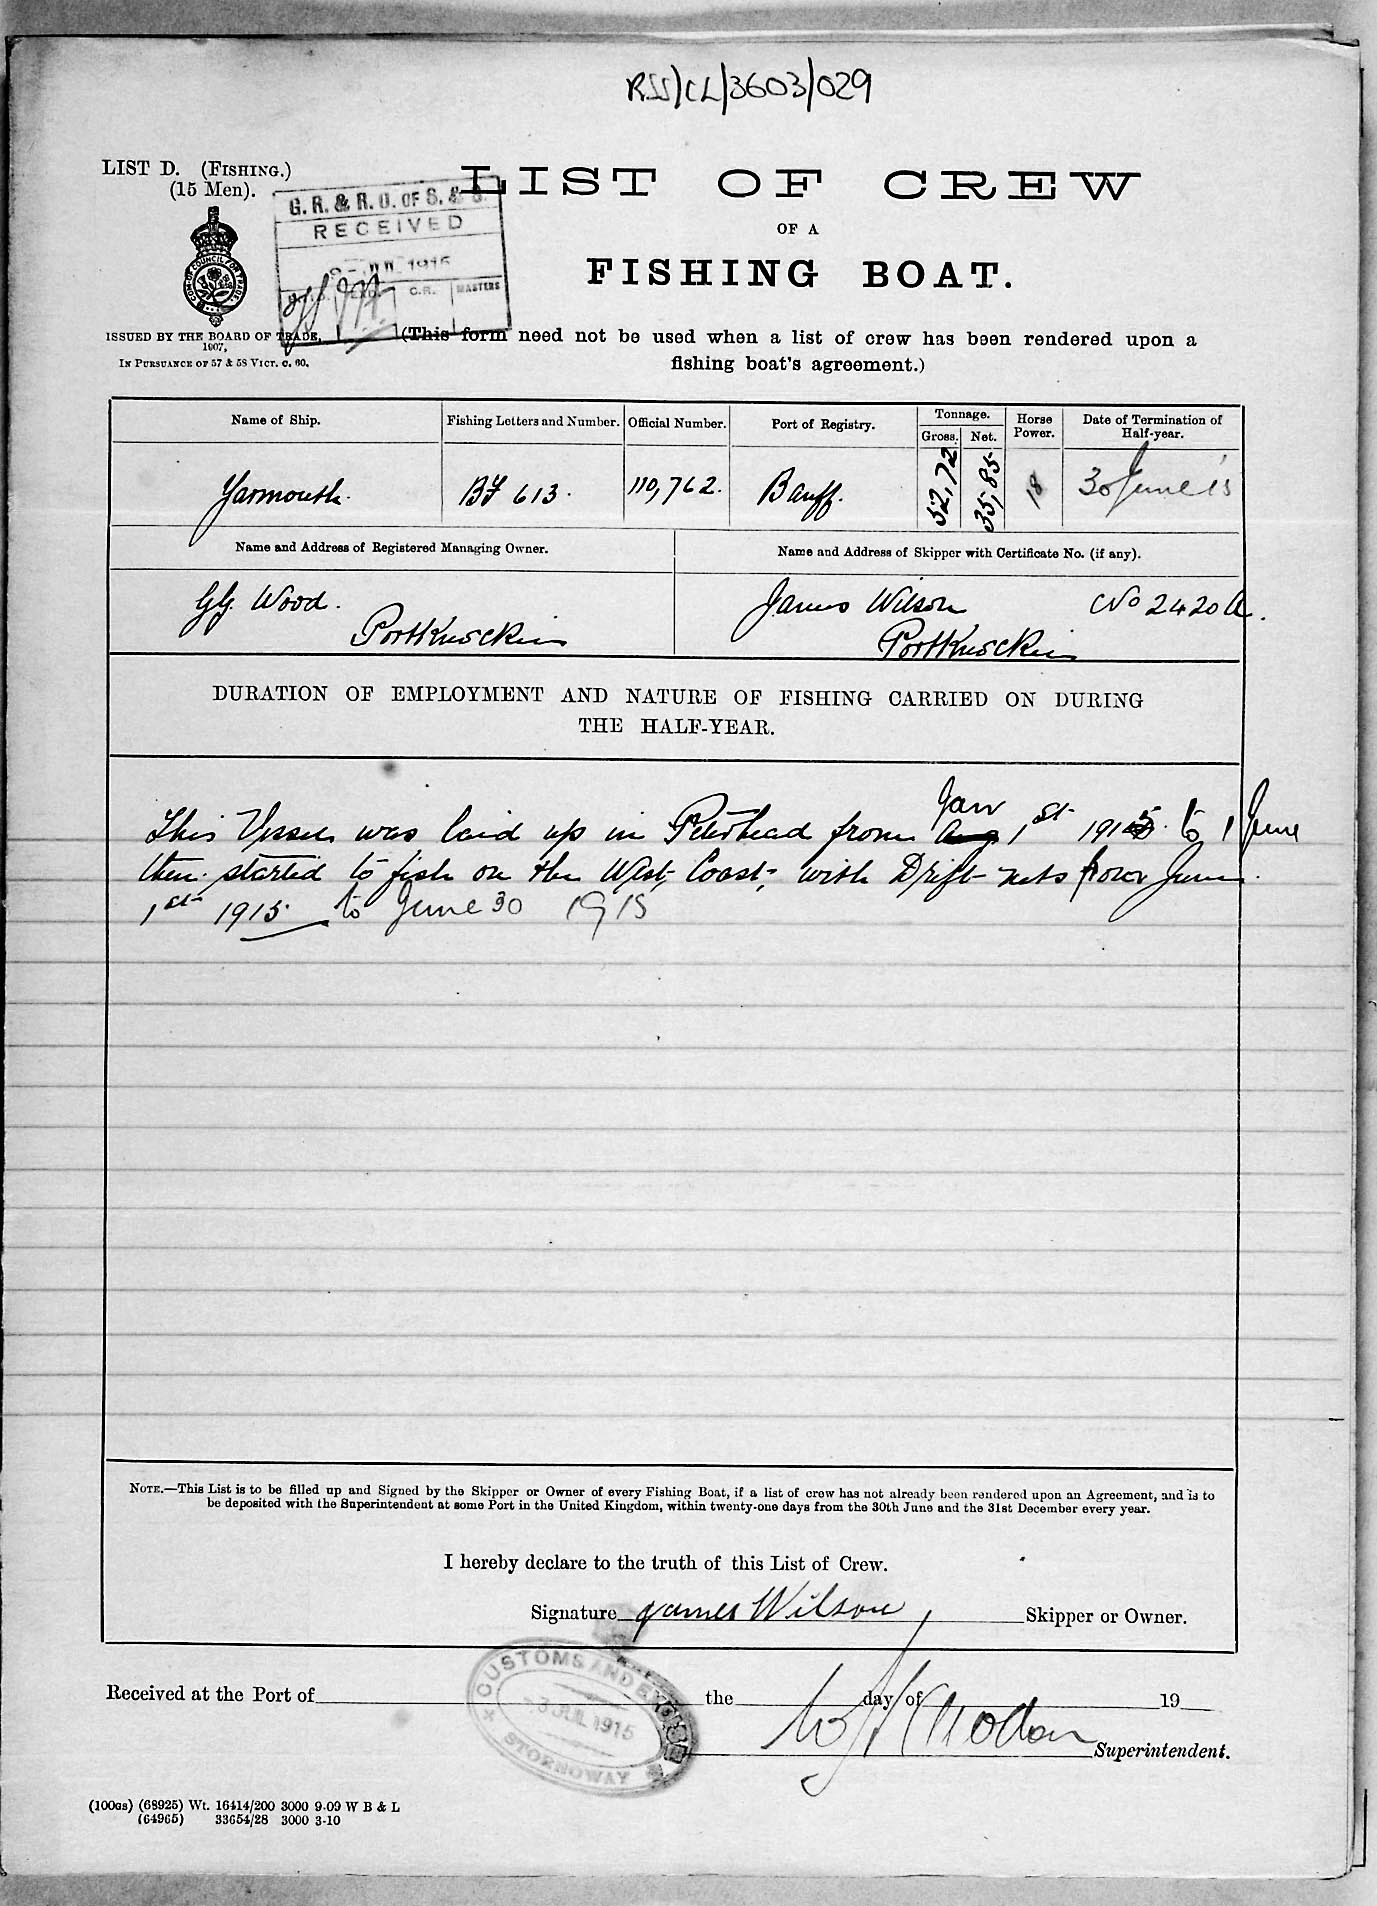 RSS/CL/3603/029
LIST D. (FISHING.)
(15 Men).
LIST OF CREW
OF A
FISHING BOAT.
G. R. & R. O. OF S. & S.
RECEIVED
1915
C.R.
MASTERS
ISSUED BY THE BOARD OF TRADE,
1907,
IN PURSUANCE OF 57 & 58 VICT. C. 60.
(This form need not be used when a list of crew has been rendered upon a
fishing boat's agreement.)
Name of Ship.
Fishing Letters and Number.
Official Number.
Port of Registry.
Tonnage.
Gross.
Net.
Horse Power.
Date of Termination of Half-year.
Yarmouth
BF 613.
110,762.
Banff.
52,72
35,85
18
30 June 15
Name and Address of Registered Managing Owner.
Name and Address of Skipper with Certificate No. (if any).
GG. Wood.
James Wilson No 2420
Portknockie
Portknockie
DURATION OF EMPLOYMENT AND NATURE OF FISHING CARRIED ON DURING
THE HALF-YEAR.
This Vessel was laid up in Peterhead from Jan 1st 1915. to 1 June
then started to fish on the West Coast, with Drift nets from June
1st 1915 to June 30 1915
NOTE.—This List is to be filled up and Signed by the Skipper or Owner of every Fishing Boat, if a list of crew has not already been rendered upon an Agreement, and is to
be deposited with the Superintendent at some Port in the United Kingdom, within twenty-one days from the 30th June and the 31st December every year.
I hereby declare to the truth of this List of Crew.
Signature James Wilson, Skipper or Owner.
CUSTOMS AND EXCISE
3 JUL 1915
STORNOWAY
Received at the Port of the day of 19
Superintendent.
(100GS) (68925) Wt. 16414/200 3000 9-09 W B & L
(64965) 33654/28 3000 3-10